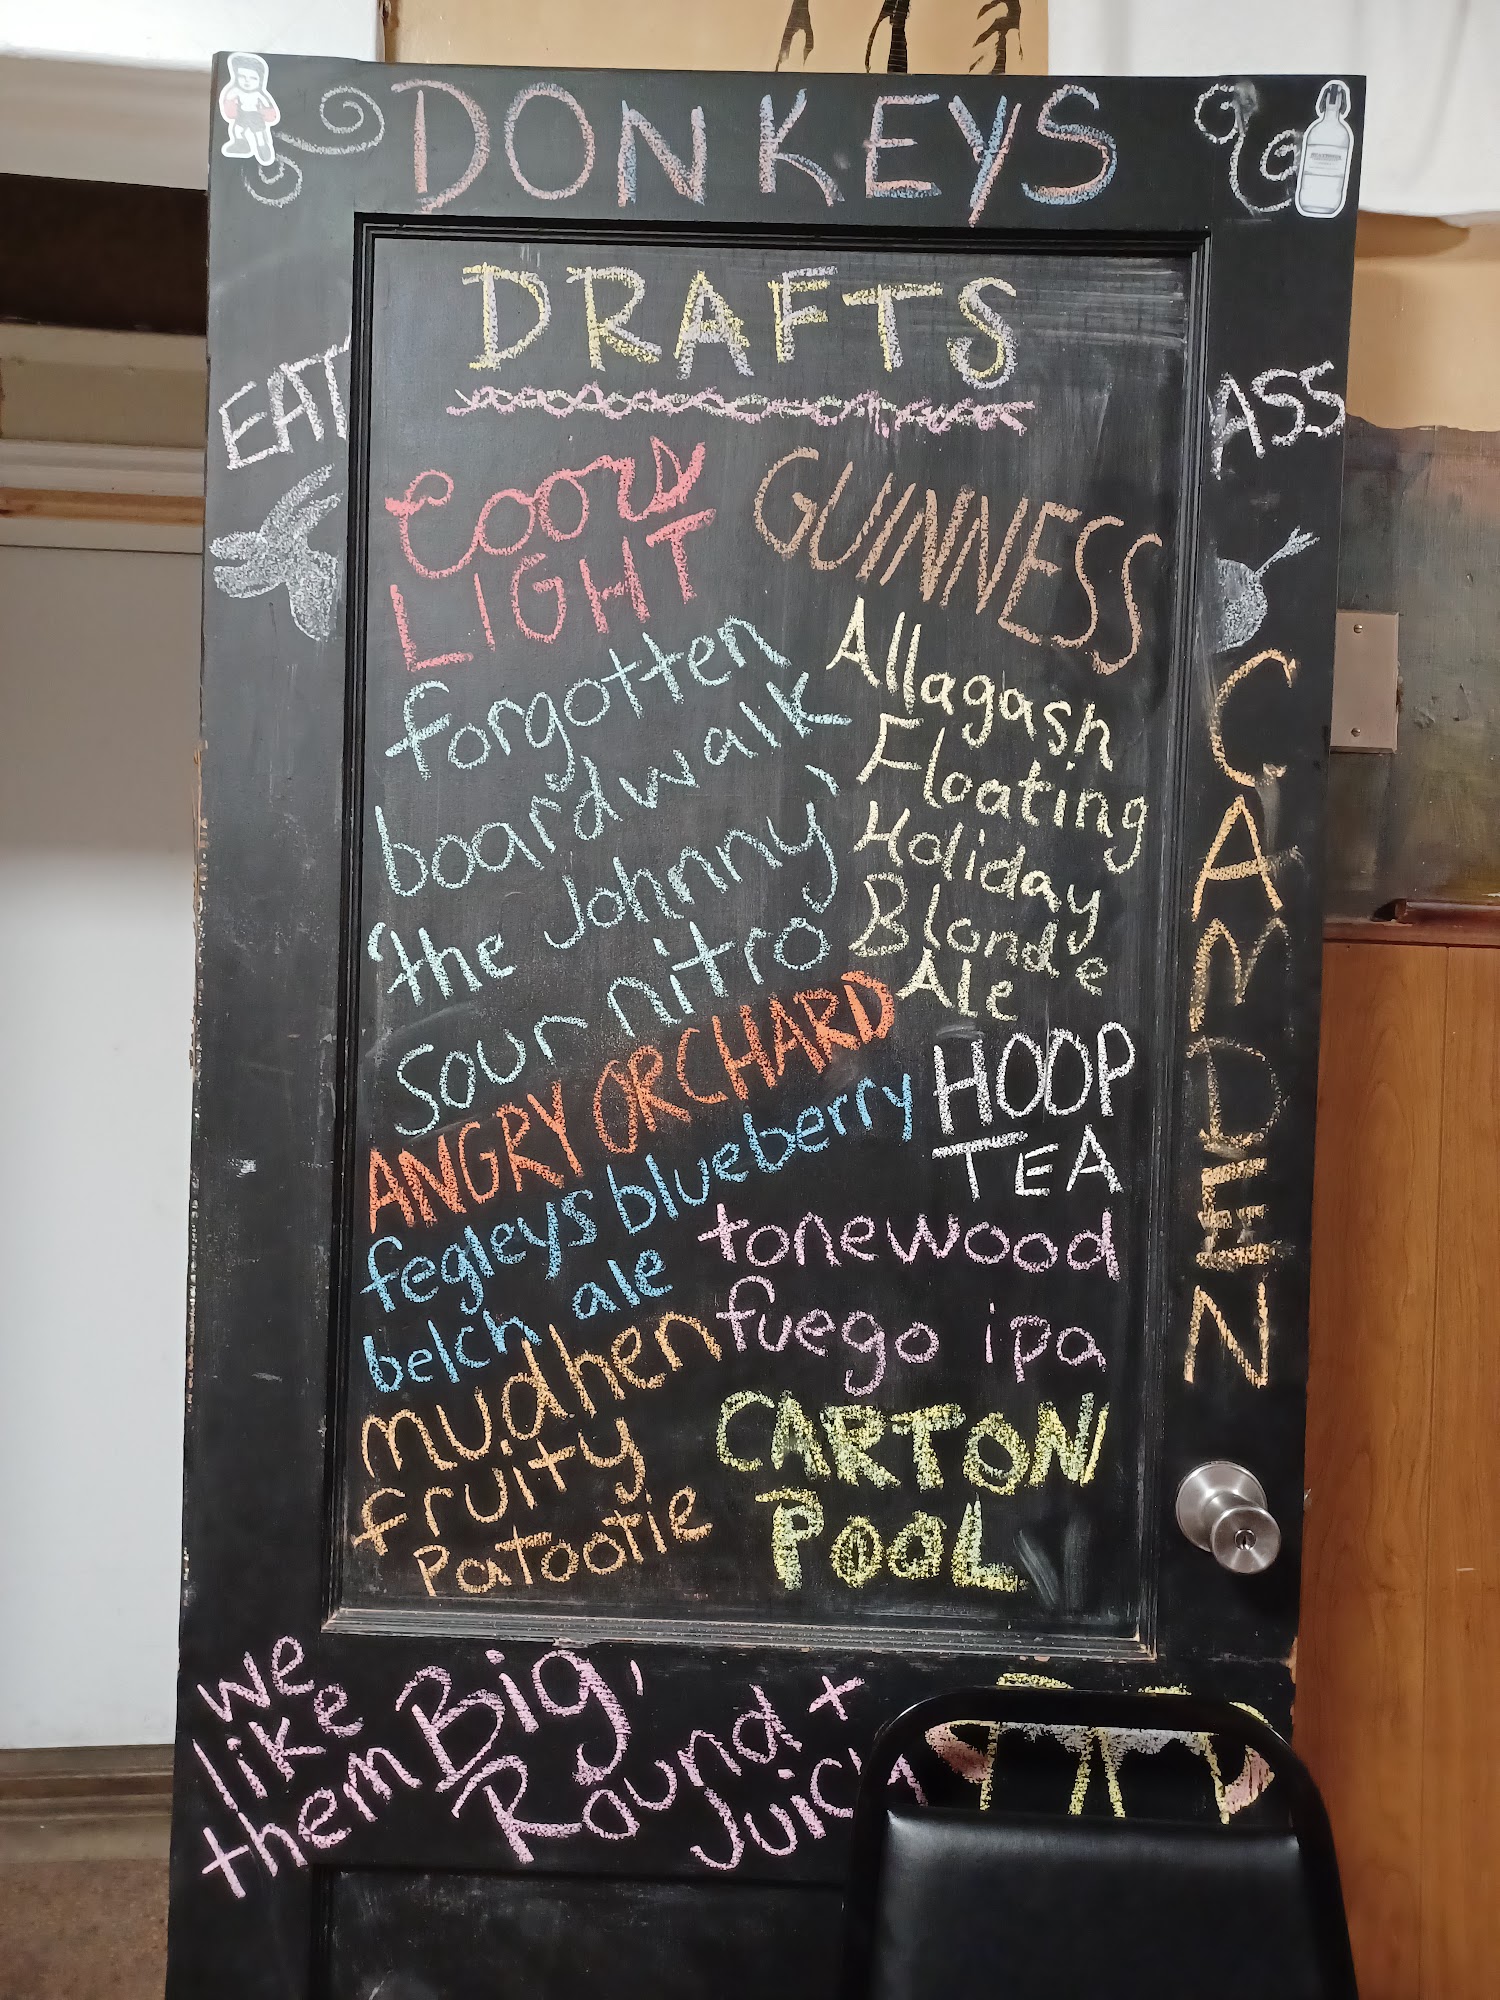 DONKEYS
DRAFTS
EAT
ASS
Coors
LIGHT
forgotten
boardwalk
'the Johnny'
sour nitro
ANGRY ORCHARD
fegleys blueberry
belch ale
mudhen
fruity
patootie
GUINNESS
Allagash
Floating
Holiday
Blonde
Ale
HOOP
TEA
tonewood
fuego ipa
CARTON
POOL
CAMDEN
we
like
them Big,
Round +